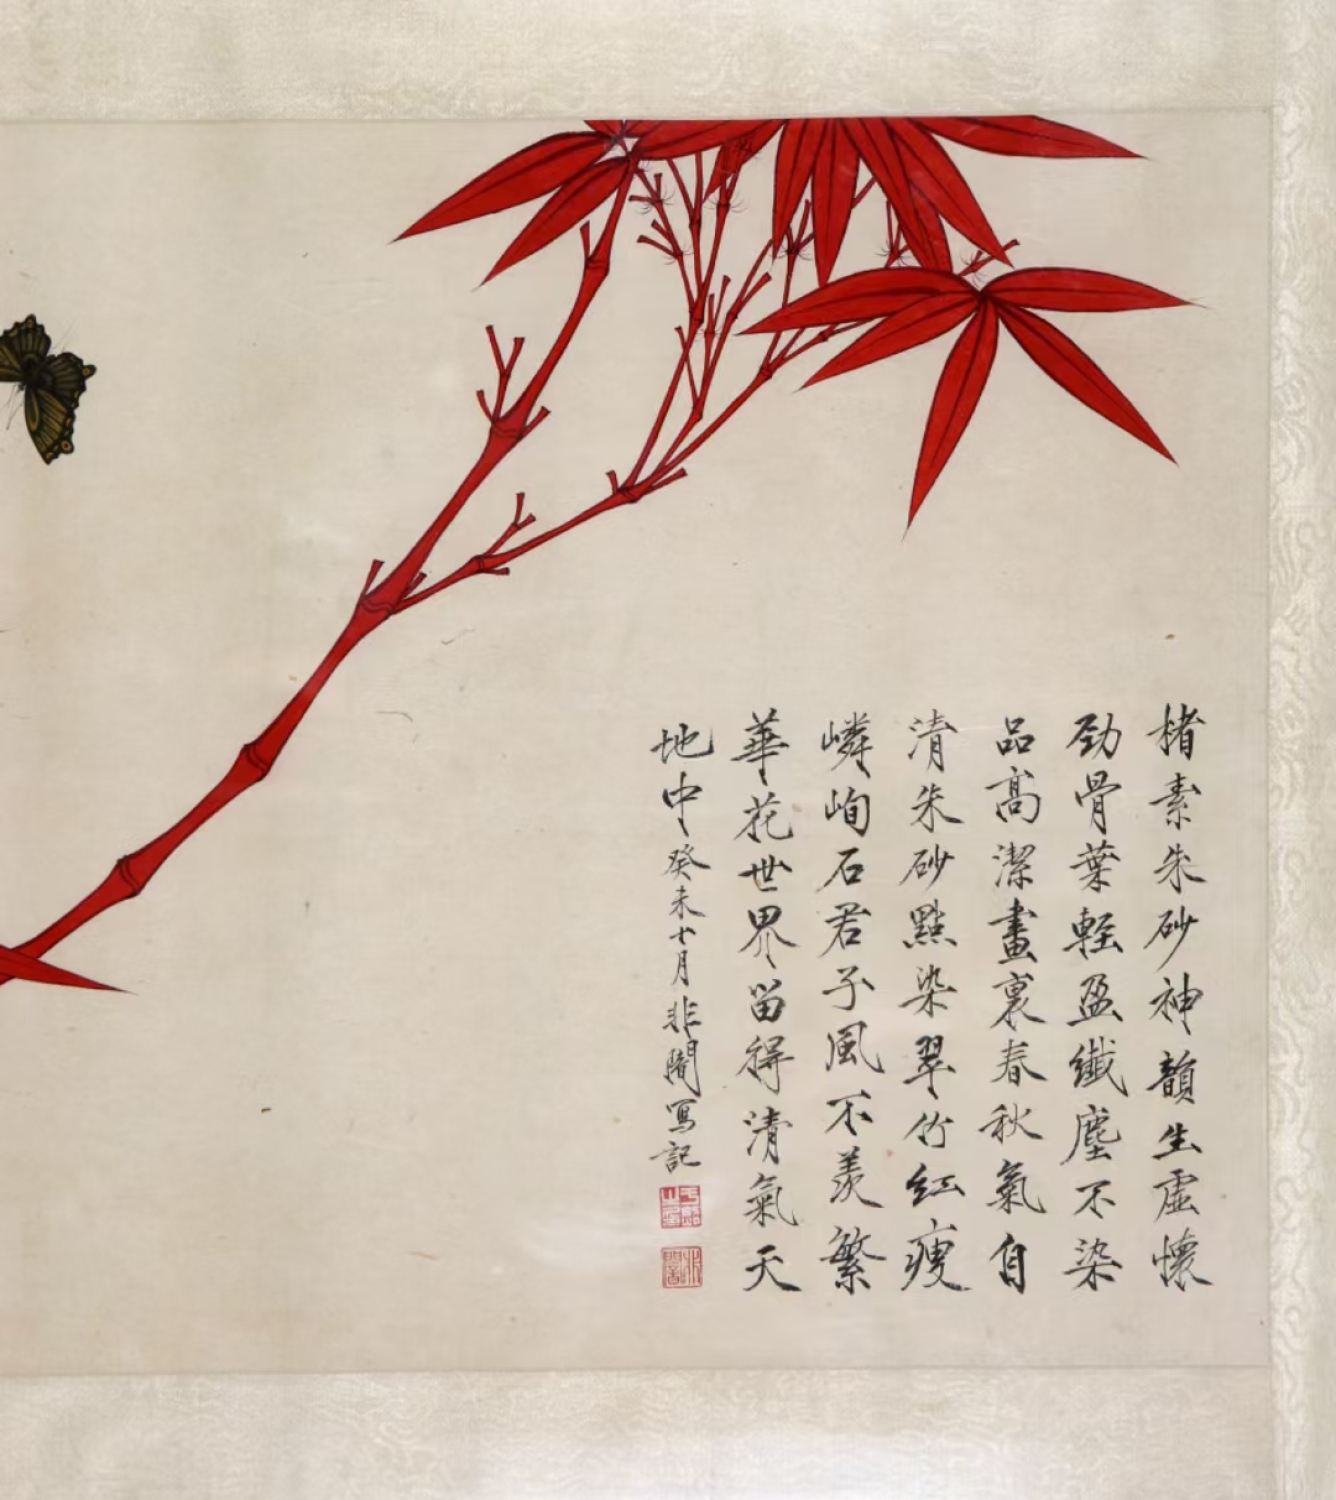 楮素朱砂神韻生虛懷
勁骨葉輕盈纖塵不染
品高潔畫裏春秋氣自
清朱砂點染翠竹紅瘦
嶙峋石君子風不羨繁
華花世界留得清氣天
地中癸未十月非闇寫記
非闇